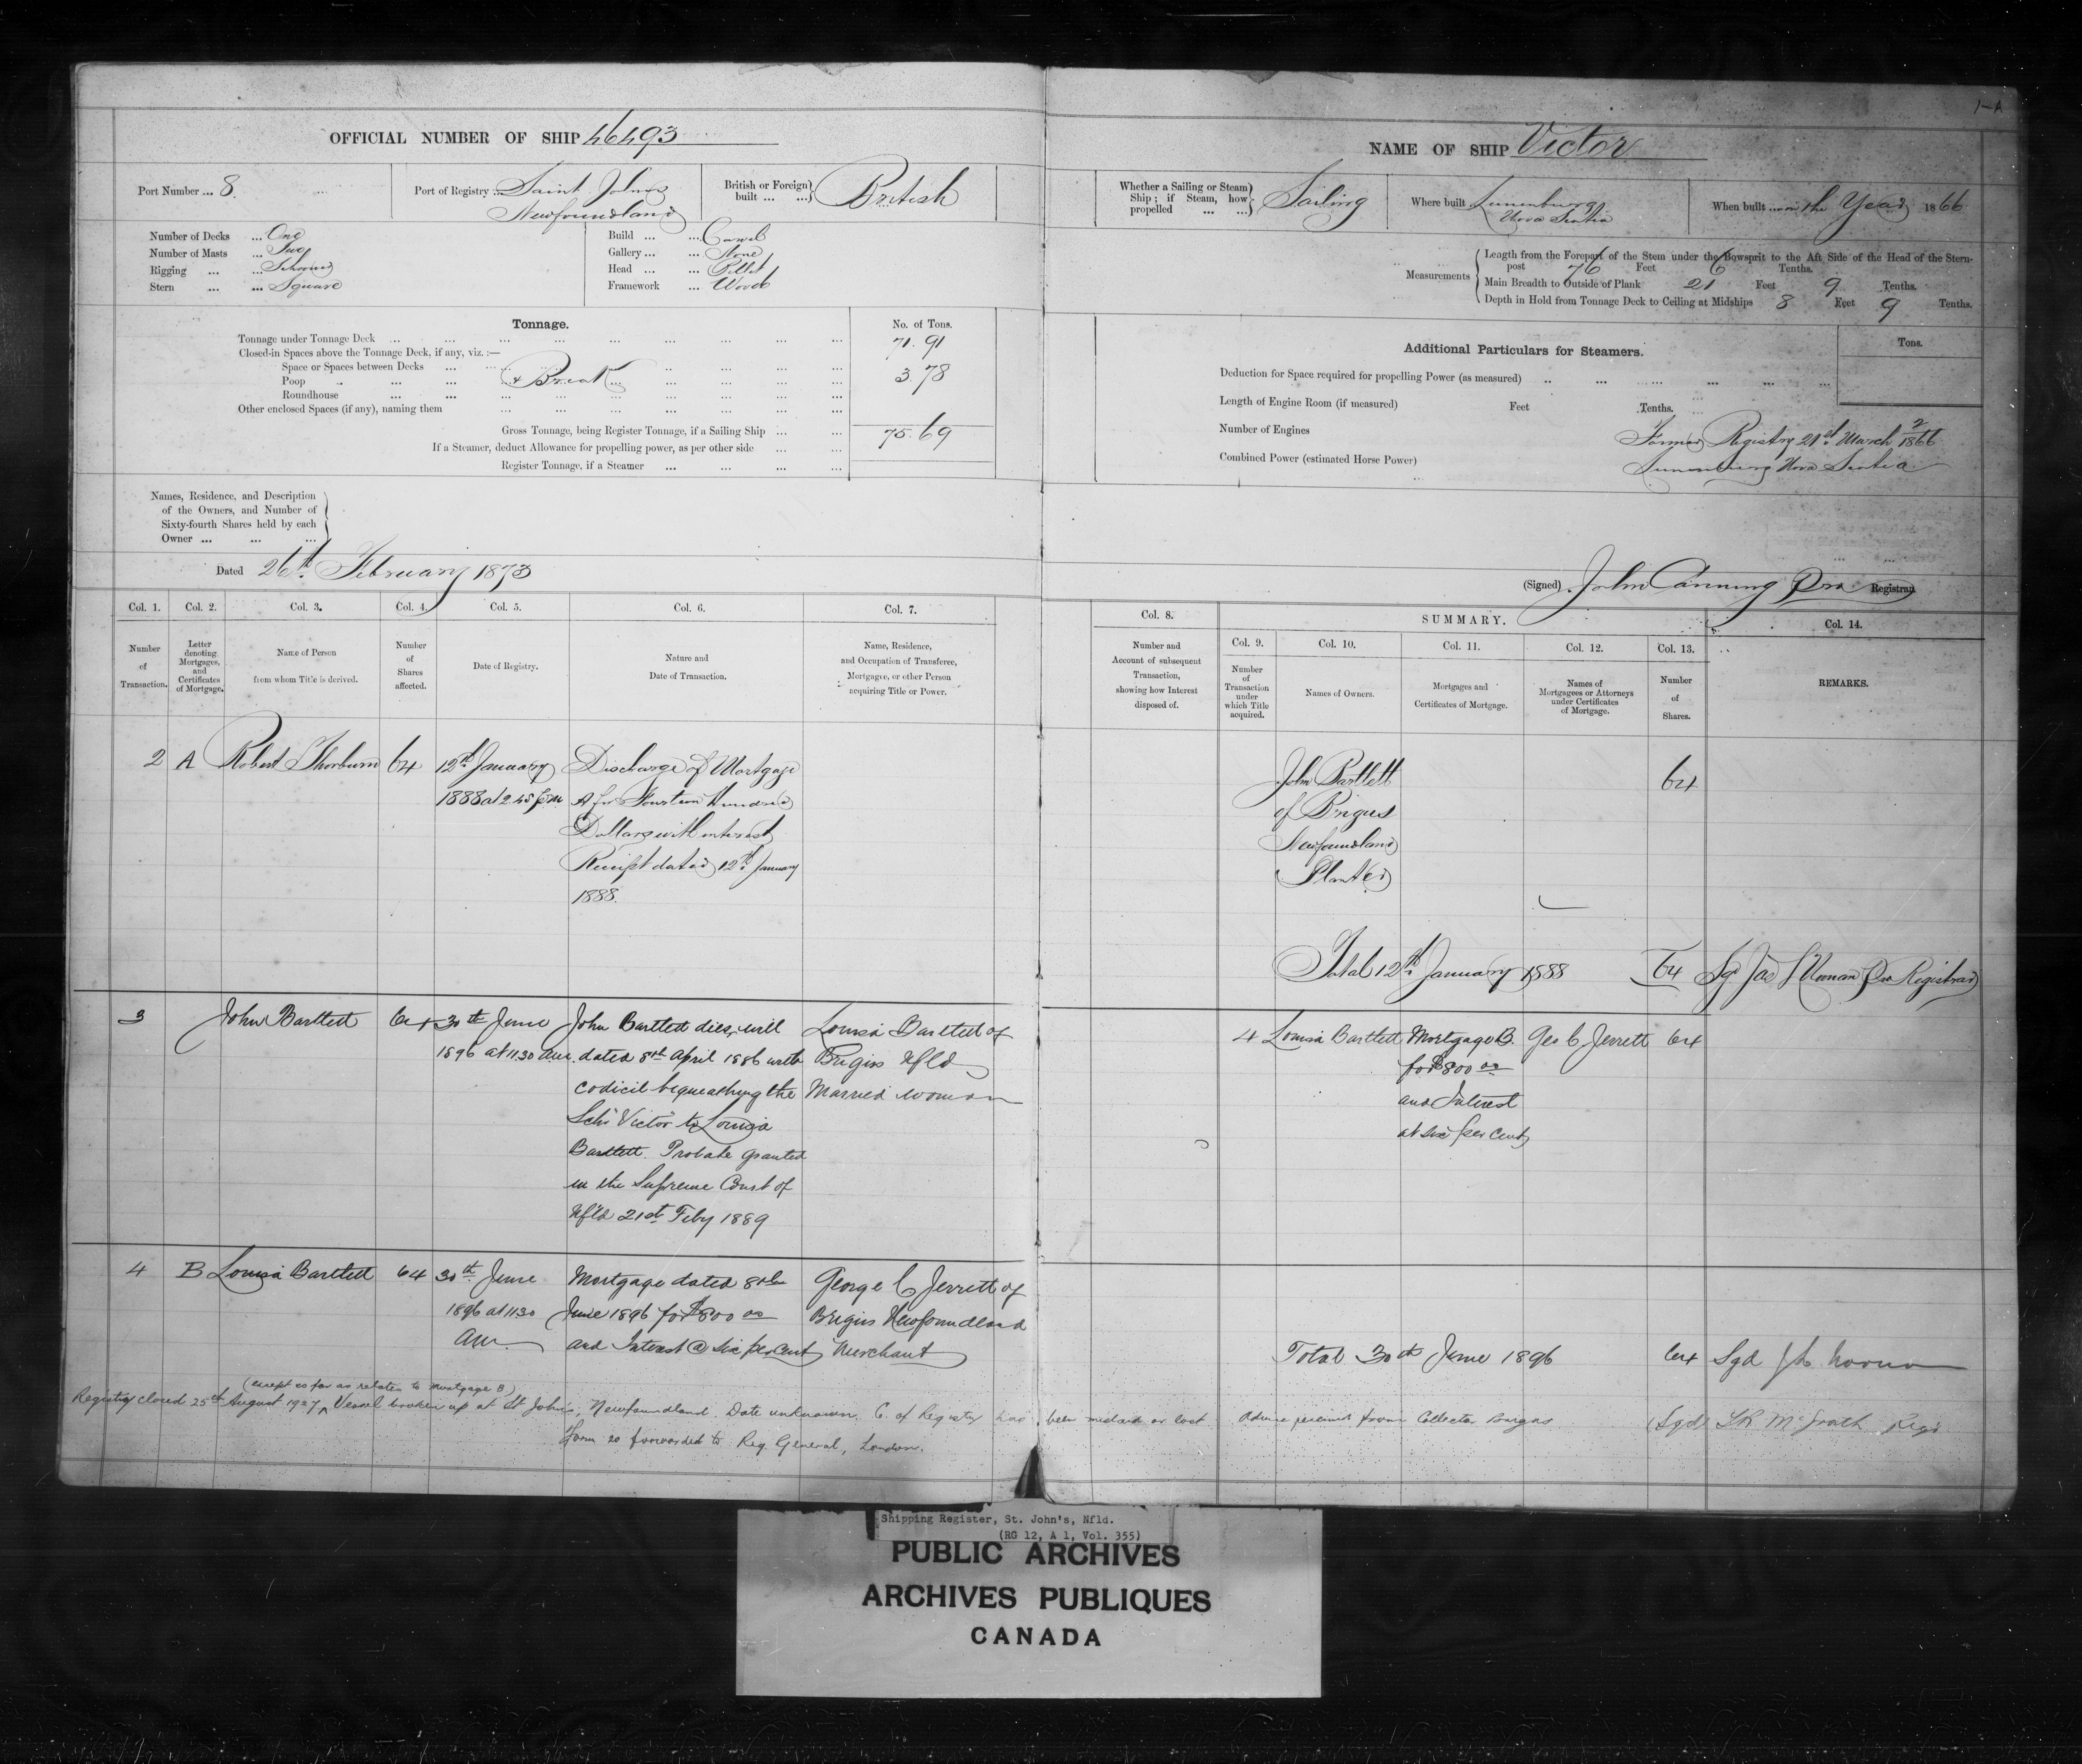 1-A
OFFICIAL NUMBER OF SHIP 46493
Port Number ... 8.
Port of Registry ... Saint Johns
Newfoundland
British or Foreign
built ... ...
British
Number of Decks ... One
Number of Masts ... Two
Rigging ... ... Schooner
Stern ... ... Square
Build ... ... Carvel
Gallery ... ... None
Head ... ... Billet
Framework ... Wood
Tonnage.
No. of Tons.
Tonnage under Tonnage Deck ... 71.91
Closed-in Spaces above the Tonnage Deck, if any, viz. :—
Space or Spaces between Decks ...
Poop ... & Break ... 3.78
Roundhouse ...
Other enclosed Spaces (if any), naming them ...
Gross Tonnage, being Register Tonnage, if a Sailing Ship ... 75.69
If a Steamer, deduct Allowance for propelling power, as per other side ...
Register Tonnage, if a Steamer ...
Names, Residence, and Description
of the Owners, and Number of
Sixty-fourth Shares held by each
Owner ... ... ...
Dated 26th February 1873
Col. 1. Col. 2. Col. 3. Col. 4. Col. 5. Col. 6. Col. 7.
Number
of
Transaction.
Letter
denoting
Mortgages,
and
Certificates
of Mortgage.
Name of Person
from whom Title is derived.
Number
of
Shares
affected.
Date of Registry.
Nature and
Date of Transaction.
Name, Residence,
and Occupation of Transferee,
Mortgagee, or other Person
acquiring Title or Power.
2 A Robert Thorburn 64
12th January
1888 at 2.45 p.m
Discharge of Mortgage
A for Fourteen Hundred
Dollars with interest
Receipt dated 12th January
1888.
3 John Bartlett 64
30th June
1896 at 11.30 a.m.
John Bartlett dies, will
dated 8th April 1886 with
codicil bequeathing the
Schr Victor to Louisa
Bartlett. Probate granted
in the Supreme Court of
Nfld 21st Feby 1889
Louisa Bartlett of
Brigus Nfld
Married woman
4 B Louisa Bartlett 64
30th June
1896 at 11.30
am.
Mortgage dated 8th
June 1896 for $800 00
and Interest @ six per cent
George C Jerrett of
Brigus Newfoundland
Merchant
(except so far as relates to Mortgage B)
Registry closed 25th August 1927 ^ Vessel broken up at St John's, Newfoundland. Date unknown. C. of Registry has been mislaid or lost. Advice received from Collector Brigus
Form 20 forwarded to Reg General, London.
(Sgd) McGrath Regr
NAME OF SHIP Victor
Whether a Sailing or Steam
Ship; if Steam, how
propelled ... ...
Sailing
Where built Lunenburg
Nova Scotia
When built ... in the Year 1866
Measurements
Length from the Forepart of the Stem under the Bowsprit to the Aft Side of the Head of the Stern-
post 76 Feet 6 Tenths.
Main Breadth to Outside of Plank 21 Feet 9 Tenths.
Depth in Hold from Tonnage Deck to Ceiling at Midships 8 Feet 9 Tenths.
Additional Particulars for Steamers.
Tons.
Deduction for Space required for propelling Power (as measured) ...
Length of Engine Room (if measured) Feet Tenths.
Number of Engines
Combined Power (estimated Horse Power)
Former Registry 21st March 2/1866
Lunenburg Nova Scotia
(Signed) John Canning Pro Registrar
Col. 8.
SUMMARY.
Col. 9. Col. 10. Col. 11. Col. 12. Col. 13. Col. 14.
Number and
Account of subsequent
Transaction,
showing how Interest
disposed of.
Number
of
Transaction
under
which Title
acquired.
Names of Owners.
Mortgages and
Certificates of Mortgage.
Names of
Mortgagees or Attorneys
under Certificates
of Mortgage.
Number
of
Shares.
REMARKS.
John Bartlett 64
of Brigus
Newfoundland
Planter
Total 12th January 1888 64 Sgd Jas Noonan Pro Registrar
4 Louisa Bartlett Mortgage B. Geo C Jerrett 64
for $800 00
and Interest
at six per cent
Total 30th June 1896 64 Sgd Noonan
Shipping Register, St. John's, Nfld.
(RG 12, A 1, Vol. 355)
PUBLIC ARCHIVES
ARCHIVES PUBLIQUES
CANADA